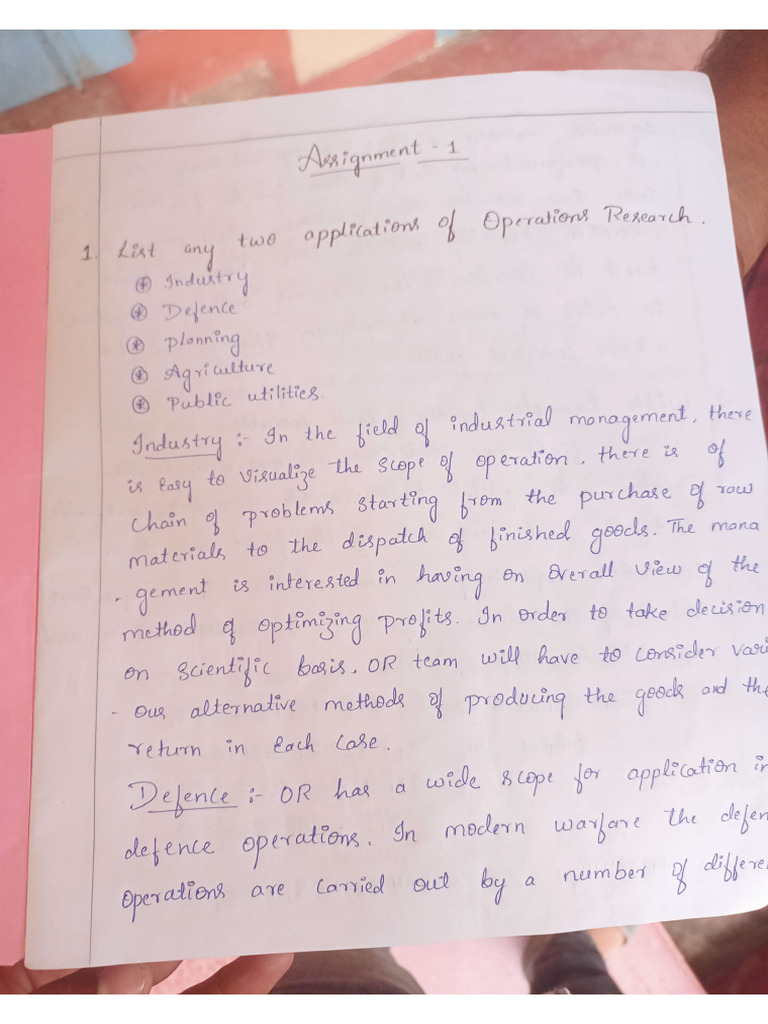 Assignment - 1
1. List any two applications of Operations Research.
⊛ Industry
⊛ Defence
⊛ planning
⊛ Agriculture
⊛ Public utilities.
Industry :- In the field of industrial management, there
is Easy to visualize the scope of operation, there is of
chain of problems starting from the purchase of row
materials to the dispatch of finished goods. The mana
- gement is interested in having on overall view of the
method of optimizing profits. In order to take decision
on scientific basis, OR team will have to consider vari
- ous alternative methods of producing the goods and the
return in Each case.
Defence :- OR has a wide scope for application in
defence operations. In modern warfare the defen
operations are carried out by a number of differe